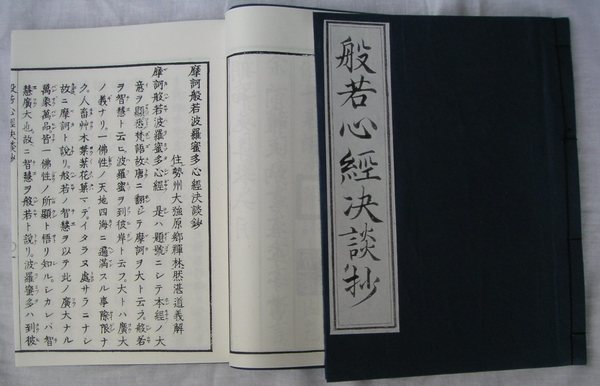 般若心經決談抄
摩訶般若波羅蜜多心經決談鈔
住勢州大強原鄉輝林㦄湛道義解
摩訶般若波羅蜜多心經 是ハ題號ニシテ本經ノ大
意ヲ顯秀梵語故唐ニ翻シテ摩訶ヲ大ト云ヲ般若
ヲ智慧ト云ヒ波羅蜜ヲ到彼岸ト云フ大トハ廣大
ノ義ナリ一佛性ノ天地四海ニ遍滿スル事際限ナ
ク人畜艸木葉葉花菓マデイタラヌ處サラニナシ
故ニ摩訶ト説リ般若ノ智慧ヲ以テ此ノ廣大ナル
萬象萬品皆一佛性ノ所顯ト悟リ知ルシカレバ智
慧廣大也故ニ智慧ヲ般若ト説リ波羅蜜多ハ到彼
般若心經決談鈔